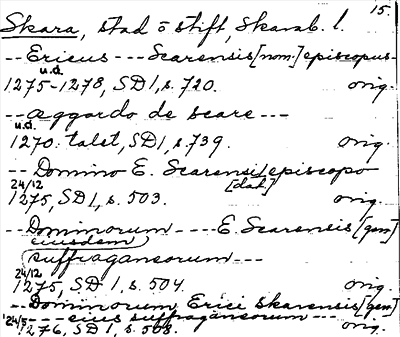 15.
Skara, stad o stift, Skarab. l.
-- Ericus --- Scarensis [nom.] episcopus-
u.d.
1275-1278, SD I, s. 720. orig.
-- aggardo de scare ---
u.d.
1270. talet, SD I, s. 739. orig.
-- Domino E. Scarensi episcopo
24/12 [dat.]
1275, SD I, s. 503. orig.
-- Dominorum ---- E. Scarensis [gen]
eiusdem
suffraganeorum ---
24/12
1275, SD I, s. 504. orig.
-- Dominorum Erici Skarensis [gen]
--- eius suffraganeorum ---
24/5
1276, SD I, s. 508. orig.